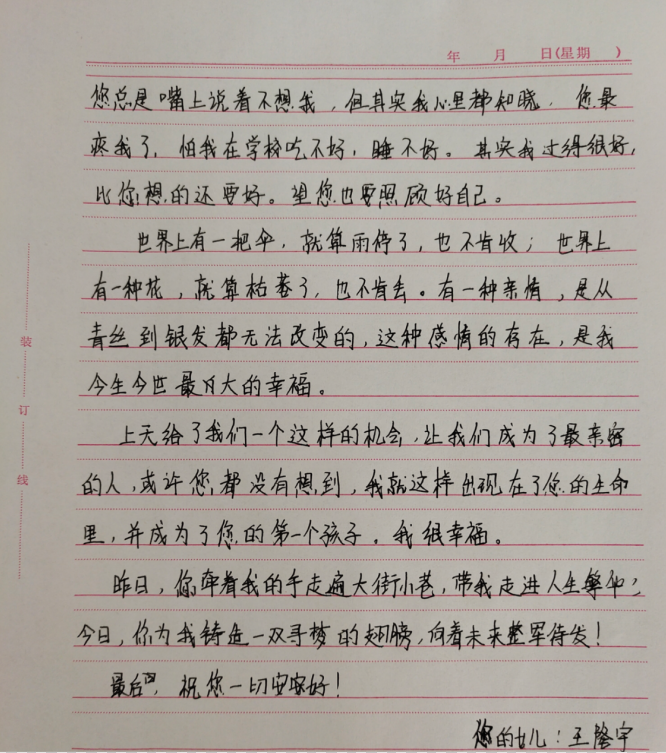 年 月 日(星期 )
您总是嘴上说着不想我，但其实我心里都知晓，您最
疼我了，怕我在学校吃不好，睡不好。其实我过得很好，
比您想的还要好。望您也要照顾好自己。
世界上有一把伞，就算雨停了，也不肯收；世界上
有一种花，就算枯萎了，也不肯丢。有一种亲情，是从
青丝到银发都无法改变的，这种感情的存在，是我
今生今世最大的幸福。
上天给了我们一个这样的机会，让我们成为了最亲密
的人，或许您都没有想到，我就这样出现在了您的生命
里，并成为了您的第一个孩子。我很幸福。
昨日，你牵着我的手走遍大街小巷，带我走进人生繁华；
今日，你为我铸造一双寻梦的翅膀，向着未来整军待发！
最后，祝您一切安好！
您的女儿：王 宇
装
订
线